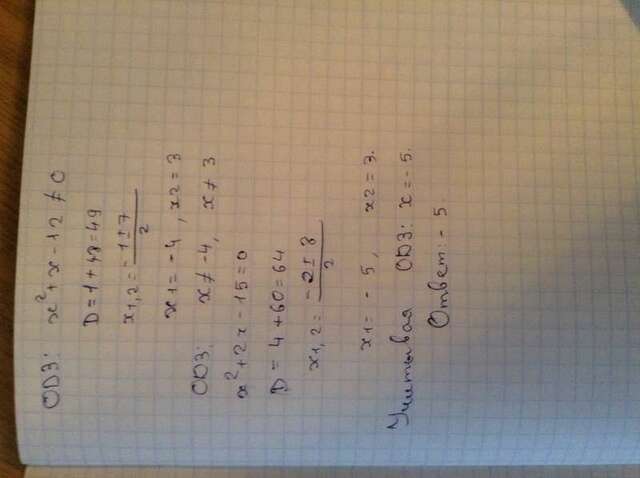 ОДЗ: x² + x - 12 ≠ 0
D = 1 + 48 = 49
x1,2 = (-1 ± 7)/2
x1 = -4, x2 = 3
ОДЗ: x ≠ -4, x ≠ 3
x² + 2x - 15 = 0
D = 4 + 60 = 64
x1,2 = (-2 ± 8)/2
x1 = -5, x2 = 3.
Учитывая ОДЗ: x = -5.
Ответ: -5